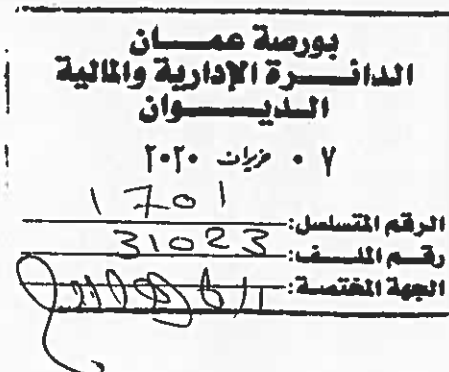 بورصة عمـــان
الدائـــرة الإدارية والمالية
الـديـــــوان
٠٧ حزيران ٢٠٢٠
الرقم المتسلسل: 1701
رقـــم الملـــف: 31023
الجهة المختصة: